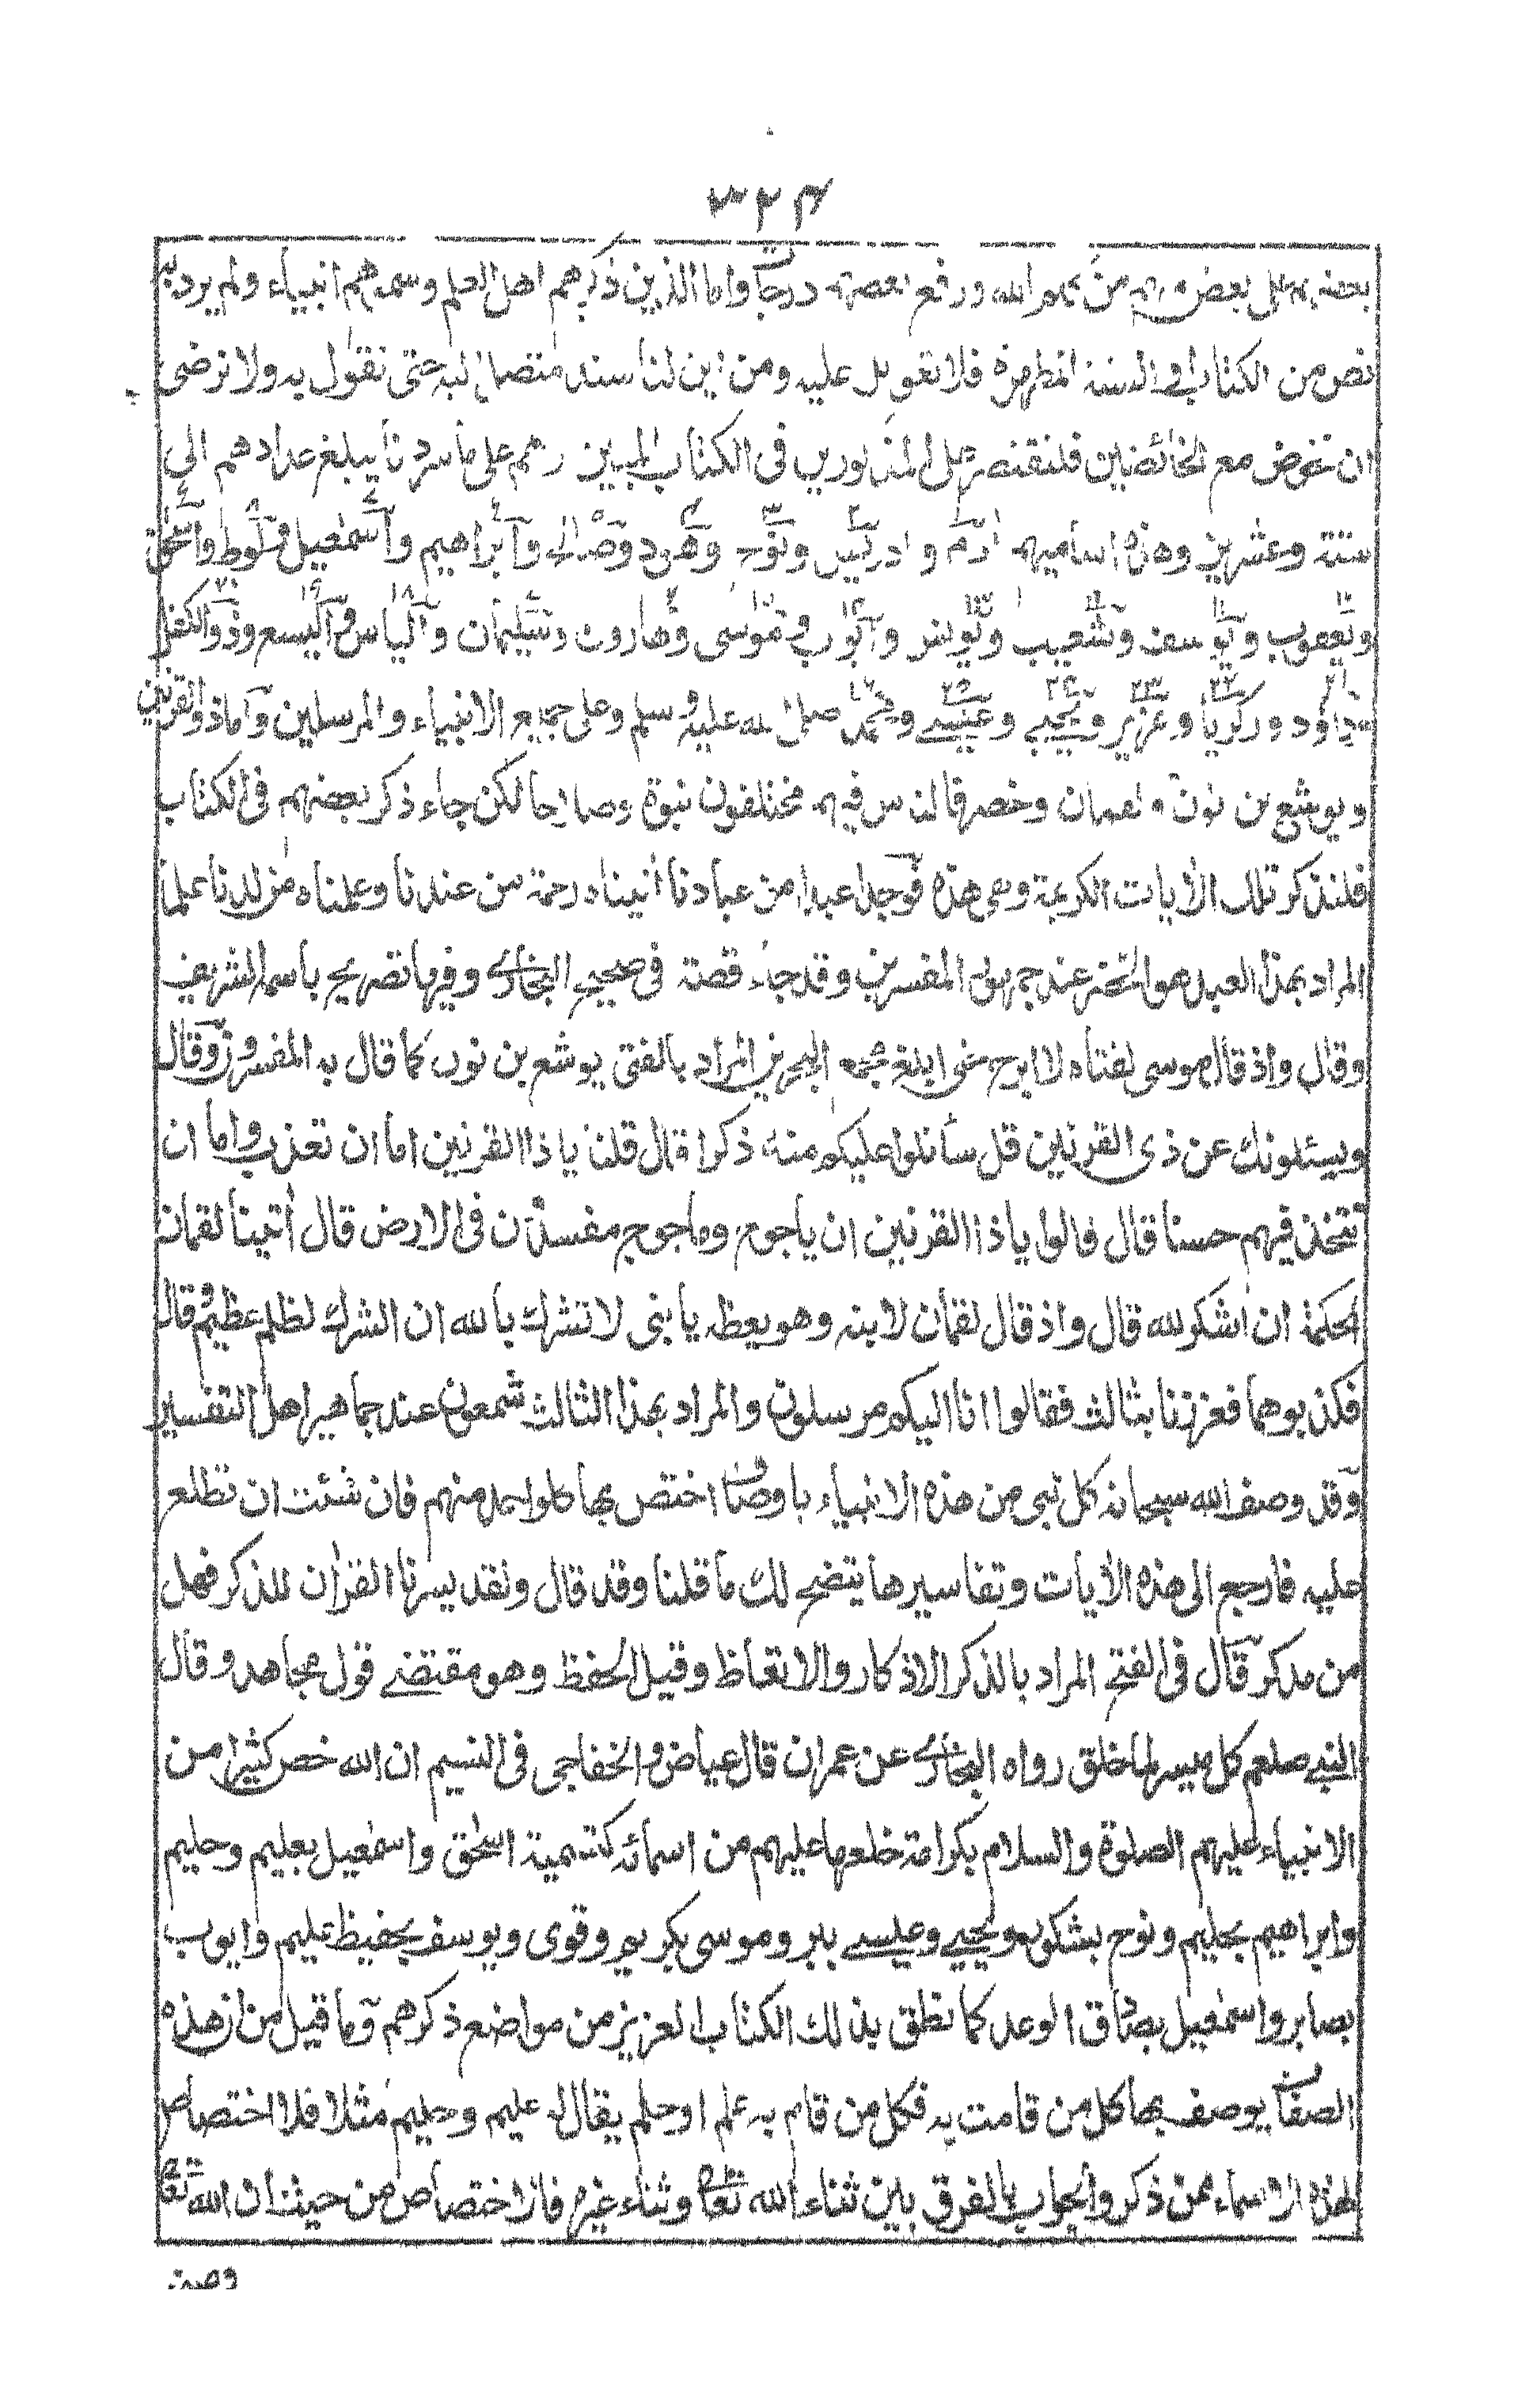 ٣٢٤
بعضهم على بعض منهم من كلم الله ورفع بعضهم درجات واما الذين ذكرهم اهل العلم وسموهم انبياء ولم يرد به
نص من الكتاب او السنة المطهرة فلا تعويل عليه ومن اين لنا سند متصل اليه حتى نقول به ولا نرضى
ان نخوض مع الخائضين فلنقتصر على المذكورين فى الكتاب المبين وهم على ما سردنا يبلغ عدادهم الى
ستة وعشرين وهذه اساميهم ادم و ادريس ونوح وهود وصالح وابراهيم واسمعيل ولوط واسحق
ويعقوب ويوسف وشعيب ويونس وايوب وموسى وهارون وسليمان والياس واليسع وذو الكفل
وداود وزكريا وعزير ويحيى وعيسى ومحمد صلى الله عليه وسلم وعلى جميع الانبياء والمرسلين واما ذو القرنين
ويوشع بن نون ولقمان وخضر فالناس فيهم مختلفون نبوة وصلاحا لكن جاء ذكر بعضهم فى الكتاب
فلنذكر تلك الأيات الكريمة وهى هذه فوجدا عبدا من عبادنا أتيناه رحمة من عندنا وعلمناه من لدنا علما
المراد بهذا العبد هو الخضر عند جمهور المفسرين وقد جاء قصته فى صحيح البخارى وفيها تصريح باسمه الشريف
وقال واذ قال موسى لفتاه لا ابرح حتى ابلغ مجمع البحرين المراد بالفتى يوشع بن نون كما قال به المفسرون وقال
ويسئلونك عن ذى القرنين قل ساتلوا عليكم منه ذكرا قال قلنا يا ذا القرنين اما ان تعذب واما ان
تتخذ فيهم حسنا قال قالوا يا ذا القرنين ان ياجوج وماجوج مفسدون فى الارض قال أتينا لقمان
الحكمة ان اشكر لله قال واذ قال لقمان لابنه وهو يعظه يا بنى لا تشرك بالله ان الشرك لظلم عظيم وقال
فكذبوهما فعززنا بثالث فقالوا انا اليكم مرسلون والمراد بهذا الثالث شمعون عند جماهير اهل التفسير
وقد وصف الله سبحانه كل نبى من هذه الانبياء باوصاف اختص بها كل واحد منهم فان شئت ان تطلع
عليه فارجع الى هذه الأيات وتفاسيرها يتضح لك ما قلنا وقد قال ولقد يسرنا القران للذكر فهل
من مدكر قال فى الفتح المراد بالذكر الاذكار والاتعاظ وقيل الحفظ وهو مقتضى قول مجاهد وقال
النبى صلعم كل ميسر لما خلق رواه البخارى عن عمران قال عياض والخفاجى فى النسيم ان الله خص كثيرا من
الانبياء عليهم الصلوة والسلام بكرامة خلعها عليهم من اسمائه كتسمية اسحق واسمعيل بعليم وحليم
وابراهيم بحليم ونوح بشكور ويحيى وعيسى ببر وموسى بكريم وقوى ويوسف بحفيظ عليم وايوب
بصابر واسمعيل بصادق الوعد كما نطق بذلك الكتاب العزيز من مواضع ذكرهم وما قيل من ان هذه
الصفات يوصف بها كل من قامت به فكل من قام به علم او حلم يقال له عليم وحليم مثلا فلا اختصاص
لهذه الاسماء بمن ذكر والجواب بالفرق بين ثناء الله تعالى وثناء غيره فالاختصاص من حيث ان الله تعالى
وصف